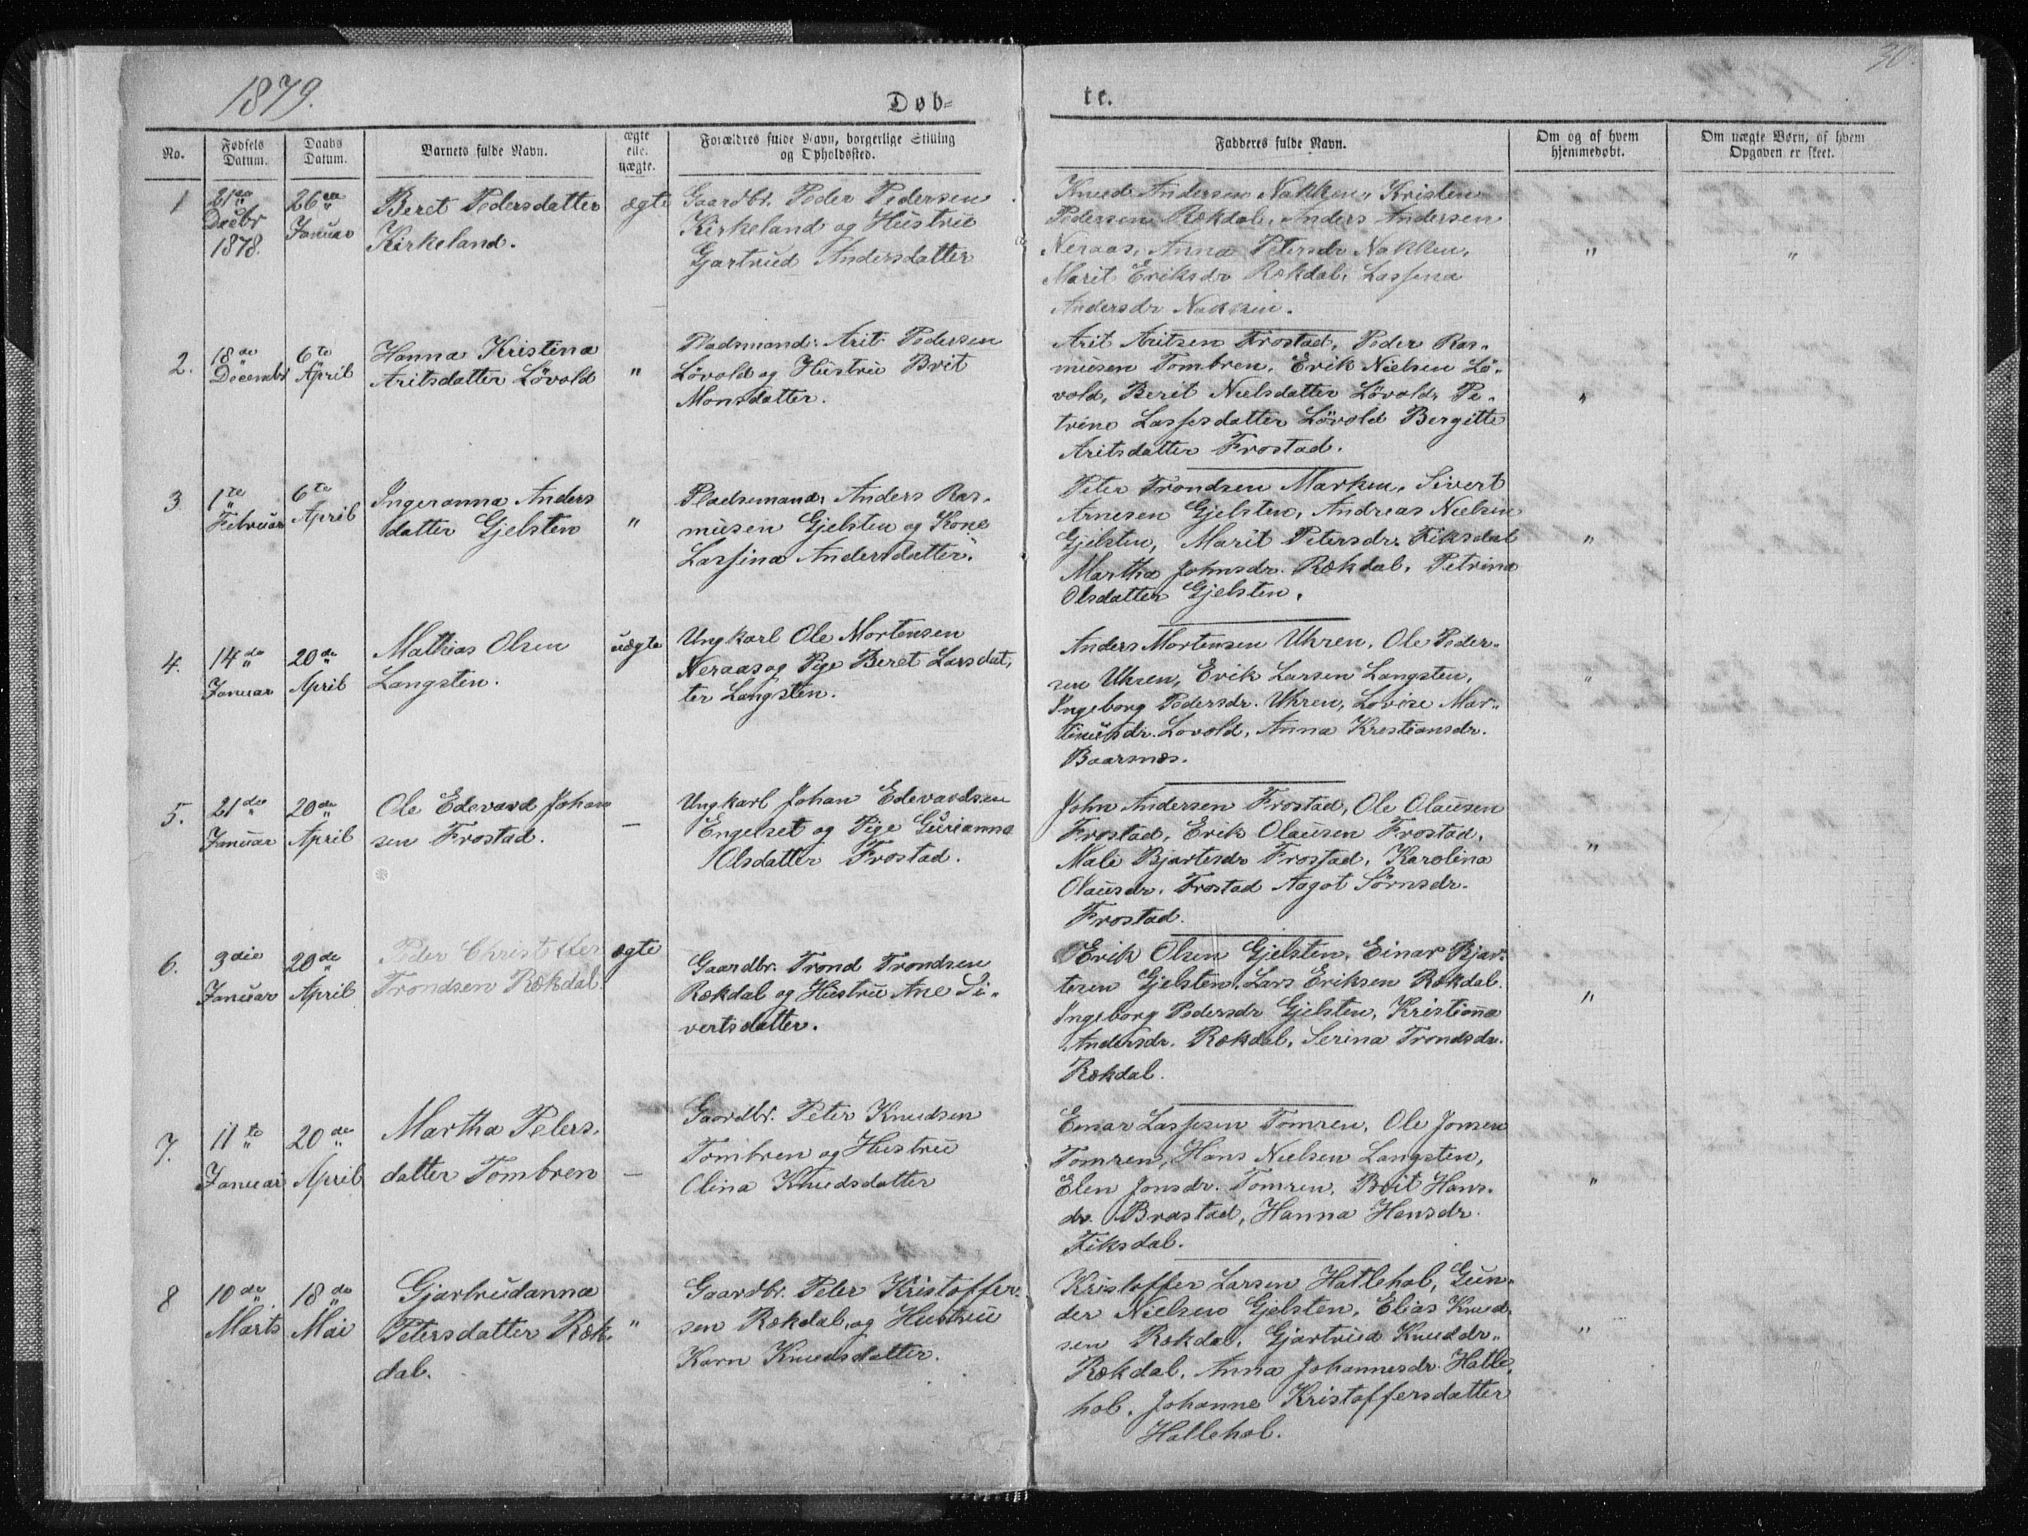 1879.
Døb-
te.
30.
No.
Fødsels
Datum.
Daabs
Datum.
Barnets fulde Navn.
ægte
ell.
uægte.
Forældres fulde Navn, borgerlige Stilling
og Opholdsted.
Fadderes fulde Navn.
Om og af hvem
hjemmedøbt.
Om uægte Børn, af hvem
Opgaven er skeet.
1
21de
Decbr
1878.
26de
Januar
Beret Pedersdatter
Kirkeland.
ægte
Gaardbr. Peder Pedersen
Kirkeland og Hustru
Gjertrud Andersdatter
Knud Andersen Nakken, Kristen
Pedersen Rekdal, Anders Andersen
Neraas, Anna Petersdr Nakken,
Marit Eriksdr Rekdal, Lassina
Andersdr Nakken.
"
"
2.
18de
Decembr
6te
April
Hanna Kristina
Aritsdatter Lövold
"
Pladsmand: Arit Pedersen
Lövold og Hustru Brit
Monsdatter.
Arit Aritsen Frostad, Peder Ras-
musen Tombren, Erik Nielsen Lö-
vold, Berit Nielsdatter Lövold, Pe-
trine Lassesdatter Lövold Bergitte
Aritsdatter Frostad.
"
3
1te
Februar
6te
April
Ingeranna Anders
datter Gjelsten
"
Pladsemand, Anders Ras-
musen Gjelsten og Kone
Lassina Andersdatter.
Peter Trondsen Marken, Sivert
Arnesen Gjelsten, Andreas Nielsen
Gjelsten, Marit Petersdr. Fiksdal
Martha Johnsdr. Rekdal, Petrina
Olsdatter Gjelsten.
"
4.
14de
Januar
20de
April
Mathias Olsen
Langsten.
uægte
Ungkarl Ole Mortensen
Neraas og Pige Beret Larsdat,
ter Langsten.
Anders Mortensen Uhren, Ole Peder-
sen Uhren, Erik Larsen Langsten,
Ingeborg Pedersdr. Uhren, Lovise Mar-
tinusdr. Lovold, Anna Krestiansdr.
Baarsnes.
"
5.
21de
Januar
20de
April
Ole Edevard Johan
sen Frostad.
—
Ungkarl Johan Edevardsen
Engelset og Pige Gurianna
Olsdatter Frostad.
John Andersen Frostad, Ole Olausen
Frostad, Erik Olausen Frostad,
Mali Bjartesdr Frostad, Karolina
Olausdr. Frostad Aagot Sörnsdr.
Frostad.
"
6.
3die
Januar
20de
April
Peder Christoffer
Trondsen Rekdal
ægte
Gaardbr. Trond Trondsen
Rekdal og Hustru Ane Si-
vertsdatter.
Erik Olsen Gjelsten, Einar Bjar-
tesen Gjelsten, Lars Eriksen Rekdal.
Ingeborg Pedersdr Gjelsten, Kristianna
Andersdr. Rekdal, Serina Trondsdr.
Rekdal.
"
7.
11te
Januar
20de
April
Martha Peters-
datter Tombren
—
Gaardbr. Peter Knudsen
Tombren og Hustru
Olina Knudsdatter
Einar Lassesen Tomren, Ole Jonsen
Tomren, Hans Nielsen Langsten,
Elen Jonsdr. Tomren, Brit Hans-
dr. Brastad, Hanna Hansdr.
Fiksdal.
"
8
10de
Marts
18de
Mai
Gjartrudanna
Petersdatter Rek-
dal.
"
Gaardbr. Peter Kristoffer-
sen Rekdal, og Hustru
Karn Knudsdatter.
Kristoffer Larsen Hatlehol, Gun-
der Nielsen Gjelsten, Elias Knud-
sen Rekdal, Gjartrud Knudsdr.
Rekdal, Anna Johannesdr. Hatle-
hol, Johanne Kristoffersdatter
Hatlehol.
"